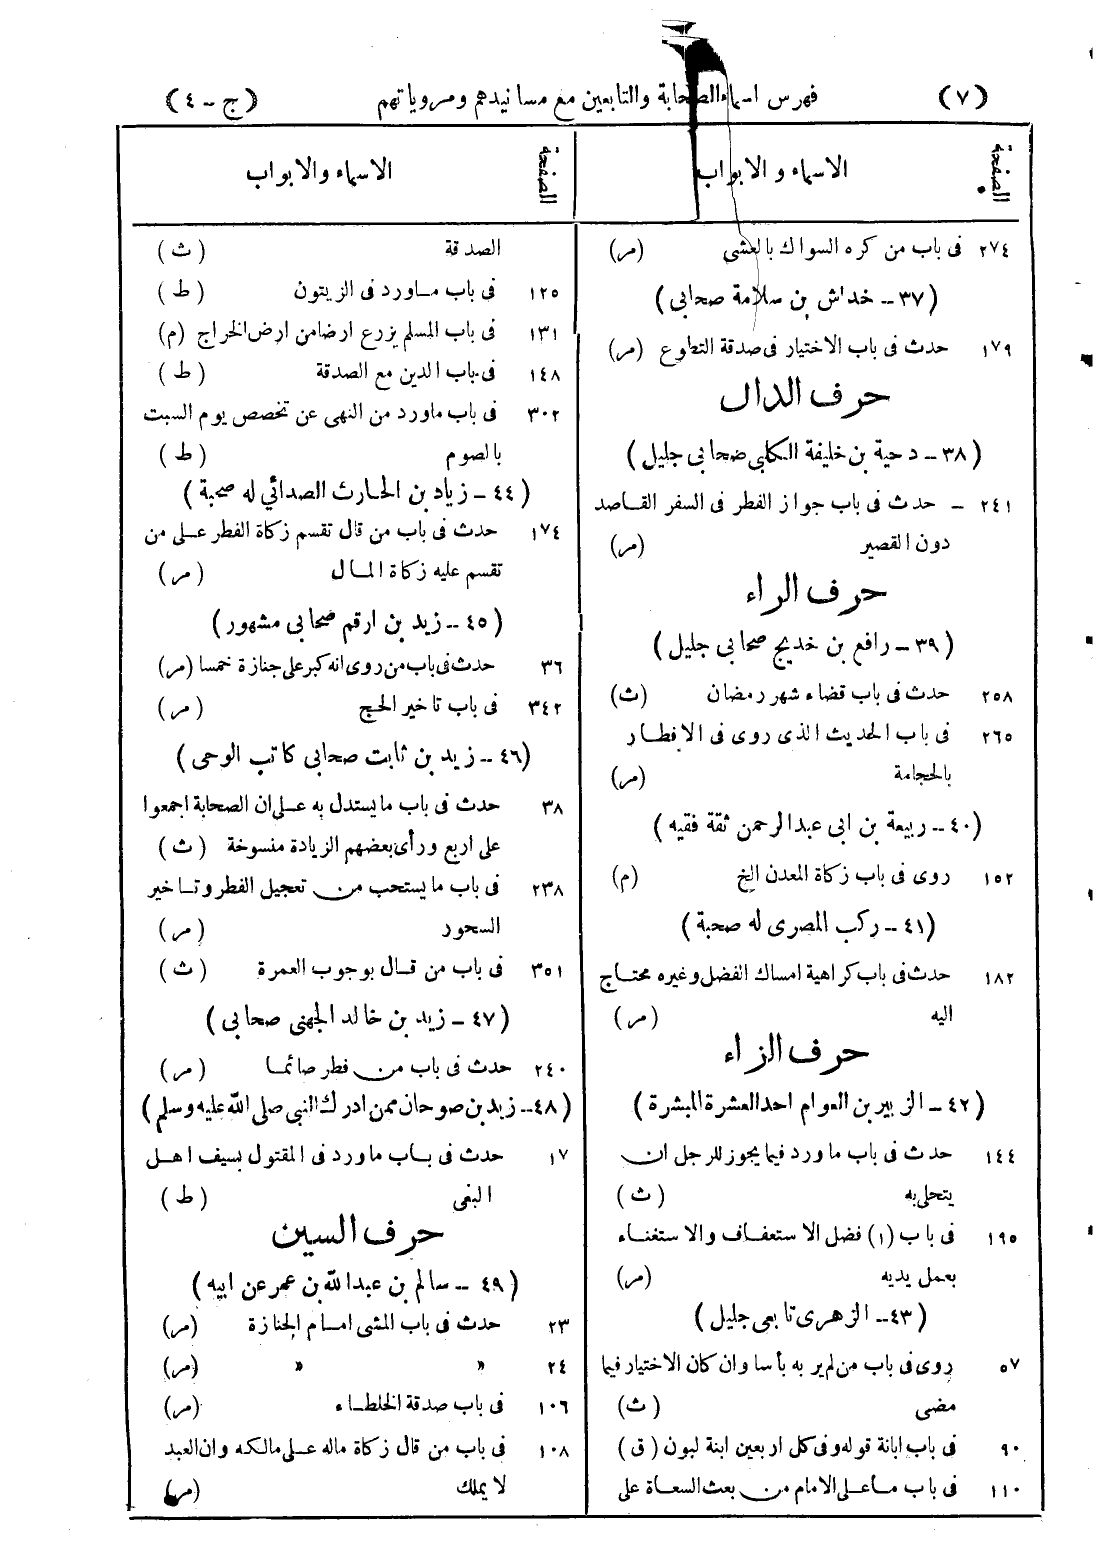 (٧) فهرس اسماء الصحابة والتابعين مع مسانيدهم ومروياتهم (ج - ٤)
الصفحة الاسماء و الابواب
٢٧٤ فى باب من كره السواك بالعشى (مر)
(٣٧ - خداش بن سلامة صحابى)
١٧٩ حدث فى باب الاختيار فى صدقة التطوع (مر)
حرف الدال
(٣٨ - دحية بن خليفة الكلبى صحابى جليل)
٢٤١ - حدث فى باب جواز الفطر فى السفر القاصد
دون القصير (مر)
حرف الراء
(٣٩ - رافع بن خديج صحابى جليل)
٢٥٨ حدث فى باب قضاء شهر رمضان (ث)
٢٦٥ فى باب الحديث الذى روى فى الافطار
بالحجامة (مر)
(٤٠ - ربيعة بن ابى عبدالرحمن ثقة فقيه)
١٥٢ روى فى باب زكاة المعدن الخ (م)
(٤١ - ركب المصرى له صحبة)
١٨٢ حدث فى باب كراهية امساك الفضل وغيره محتاج
اليه (مر)
حرف الزاء
(٤٢ - الزبير بن العوام احد العشرة المبشرة)
١٤٤ حدث فى باب ماورد فيما يجوز للرجل ان
يتحلى به (ث)
١٩٥ فى باب (١) فضل الاستعفاف والاستغناء
بعمل يديه (مر)
(٤٣ - الزهرى تابعى جليل)
٥٧ روى فى باب من لم ير به بأسا وان كان الاختيار فيما
مضى (ث)
٩٠ فى باب ابانة قوله وفى كل اربعين ابنة لبون (ق)
١١٠ فى باب ما على الامام من بعث السعاة على
الصفحة الاسماء والابواب
الصدقة (ث)
١٢٥ فى باب ماورد فى الزيتون (ط)
١٣١ فى باب المسلم يزرع ارضا من ارض الخراج (م)
١٤٨ فى باب الدين مع الصدقة (ط)
٣٠٢ فى باب ماورد من النهى عن تخصص يوم السبت
بالصوم (ط)
(٤٤ - زياد بن الحارث الصدائي له صحبة)
١٧٤ حدث فى باب من قال تقسم زكاة الفطر على من
تقسم عليه زكاة المال (مر)
(٤٥ - زيد بن ارقم صحابى مشهور)
٣٦ حدث فى باب من روى انه كبر على جنازة خمسا (مر)
٣٤٢ فى باب تاخير الحج (مر)
(٤٦ - زيد بن ثابت صحابى كاتب الوحى)
٣٨ حدث فى باب مايستدل به على ان الصحابة اجمعوا
على اربع ورأى بعضهم الزيادة منسوخة (ث)
٢٣٨ فى باب مايستحب من تعجيل الفطر وتاخير
السحور (مر)
٣٥١ فى باب من قال بوجوب العمرة (ث)
(٤٧ - زيد بن خالد الجهنى صحابى)
٢٤٠ حدث فى باب من فطر صائما (مر)
(٤٨ - زيد بن صوحان ممن ادرك النبى صلى الله عليه وسلم)
١٧ حدث فى باب ماورد فى المقتول بسيف اهل
البغى (ط)
حرف السين
(٤٩ - سالم بن عبدالله بن عمر عن ابيه)
٢٣ حدث فى باب المشى امام الجنازة (مر)
٢٤ « « (مر)
١٠٦ فى باب صدقة الخلطاء (مر)
١٠٨ فى باب من قال زكاة ماله على مالكه وان العبد
لا يملك (مر)